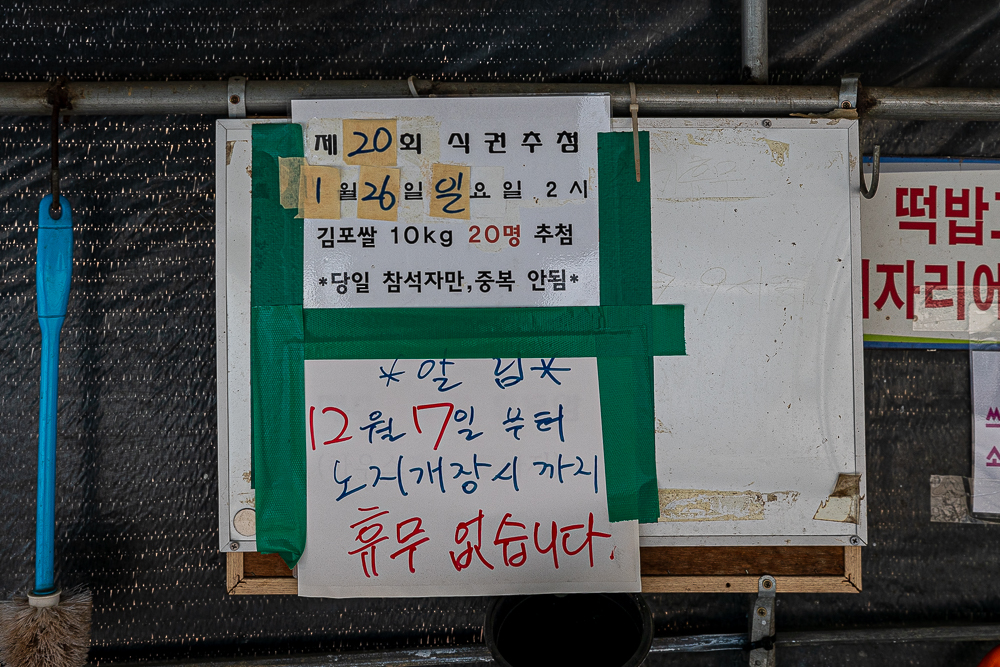 제 20회 식권추첨
1월 26일 일요일 2시
김포쌀 10kg 20명 추첨
*당일 참석자만,중복 안됨*
*알 림*
12월 17일 부터
노지개장시 까지
휴무 없습니다.
떡밥
자리에